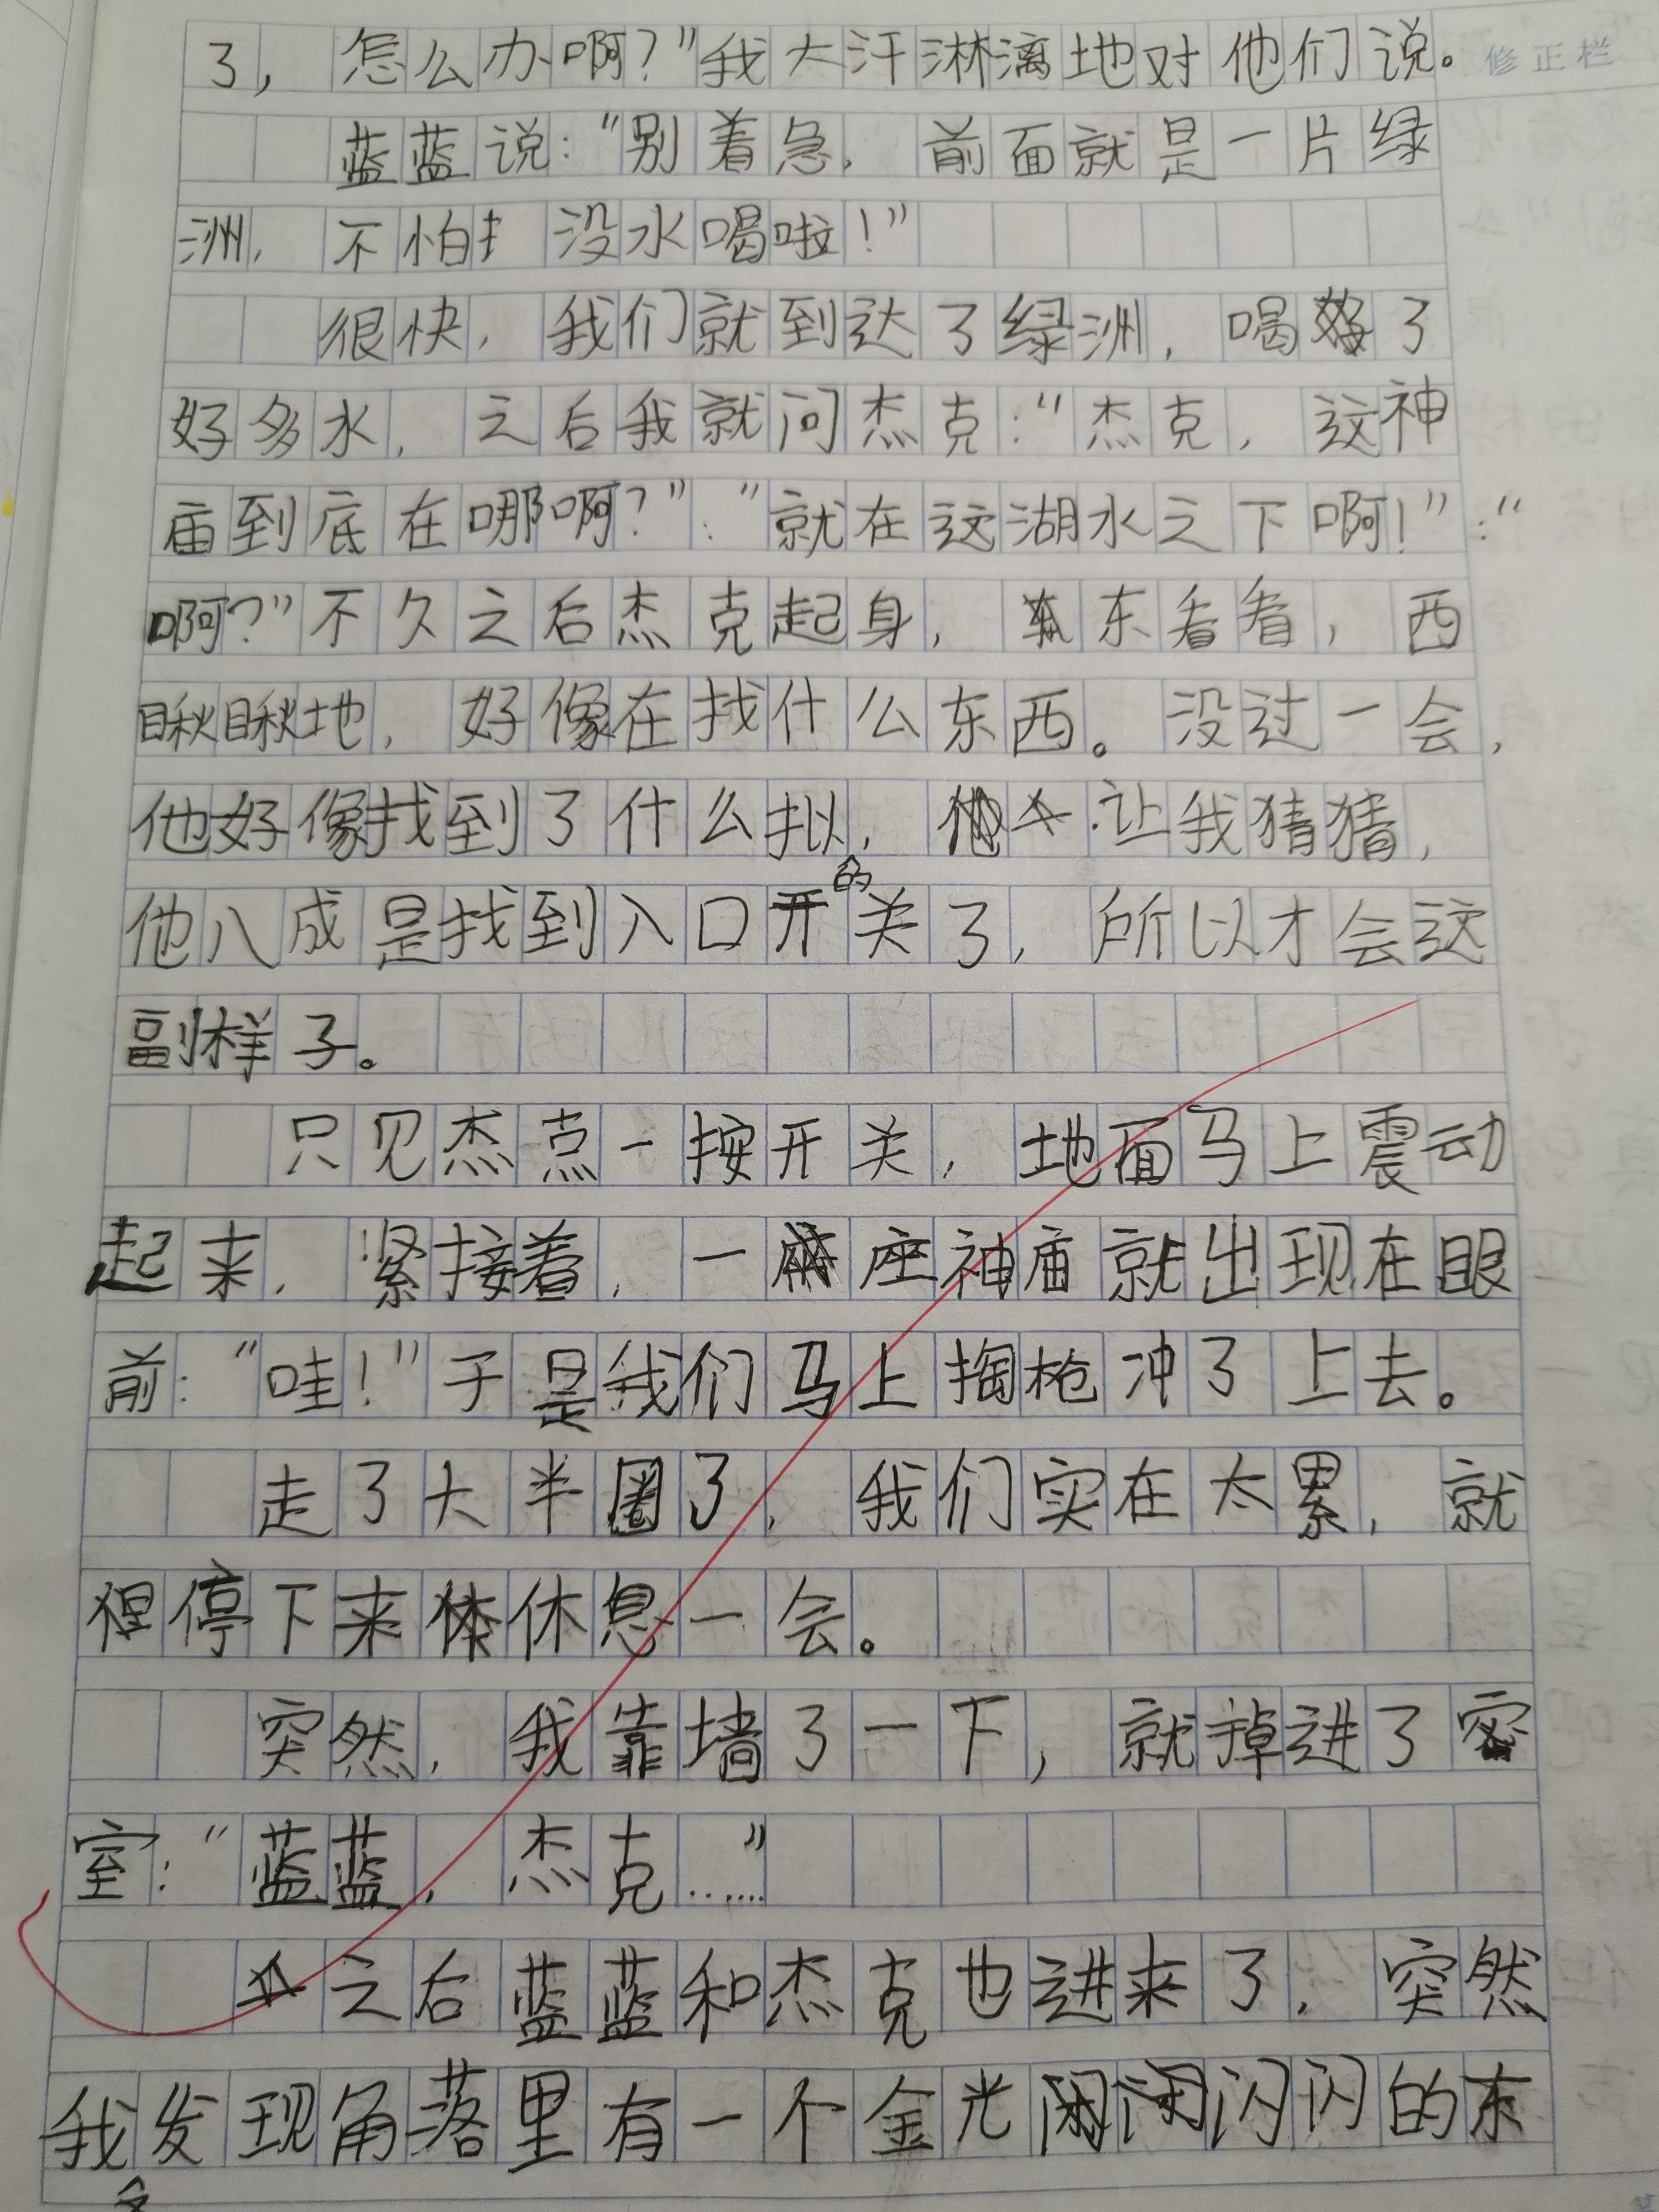 了，怎么办啊？”我大汗淋漓地对他们说。
修正栏
蓝蓝说：“别着急，前面就是一片绿
洲，不怕没水喝啦！”
很快，我们就到达了绿洲，喝了
好多水，之后我就问杰克：“杰克，这神
庙到底在哪啊？”：“就在这湖水之下啊！”：“
啊？”不久之后杰克起身，东看看，西
瞅瞅地，好像在找什么东西。没过一会，
他好像找到了什么拟，让我猜猜，
他八成是找到入口的开关了，所以才会这
副样子。
只见杰点一按开关，地面马上震动
起来，紧接着，一座神庙就出现在眼
前：“哇！”于是我们马上掏枪冲了上去。
走了大半圈了，我们实在太累，就
停下来休息一会。
突然，我靠墙了一下，就掉进了密
室：“蓝蓝，杰克……”
之后蓝蓝和杰克也进来了，突然
我发现角落里有一个金光闪闪的东